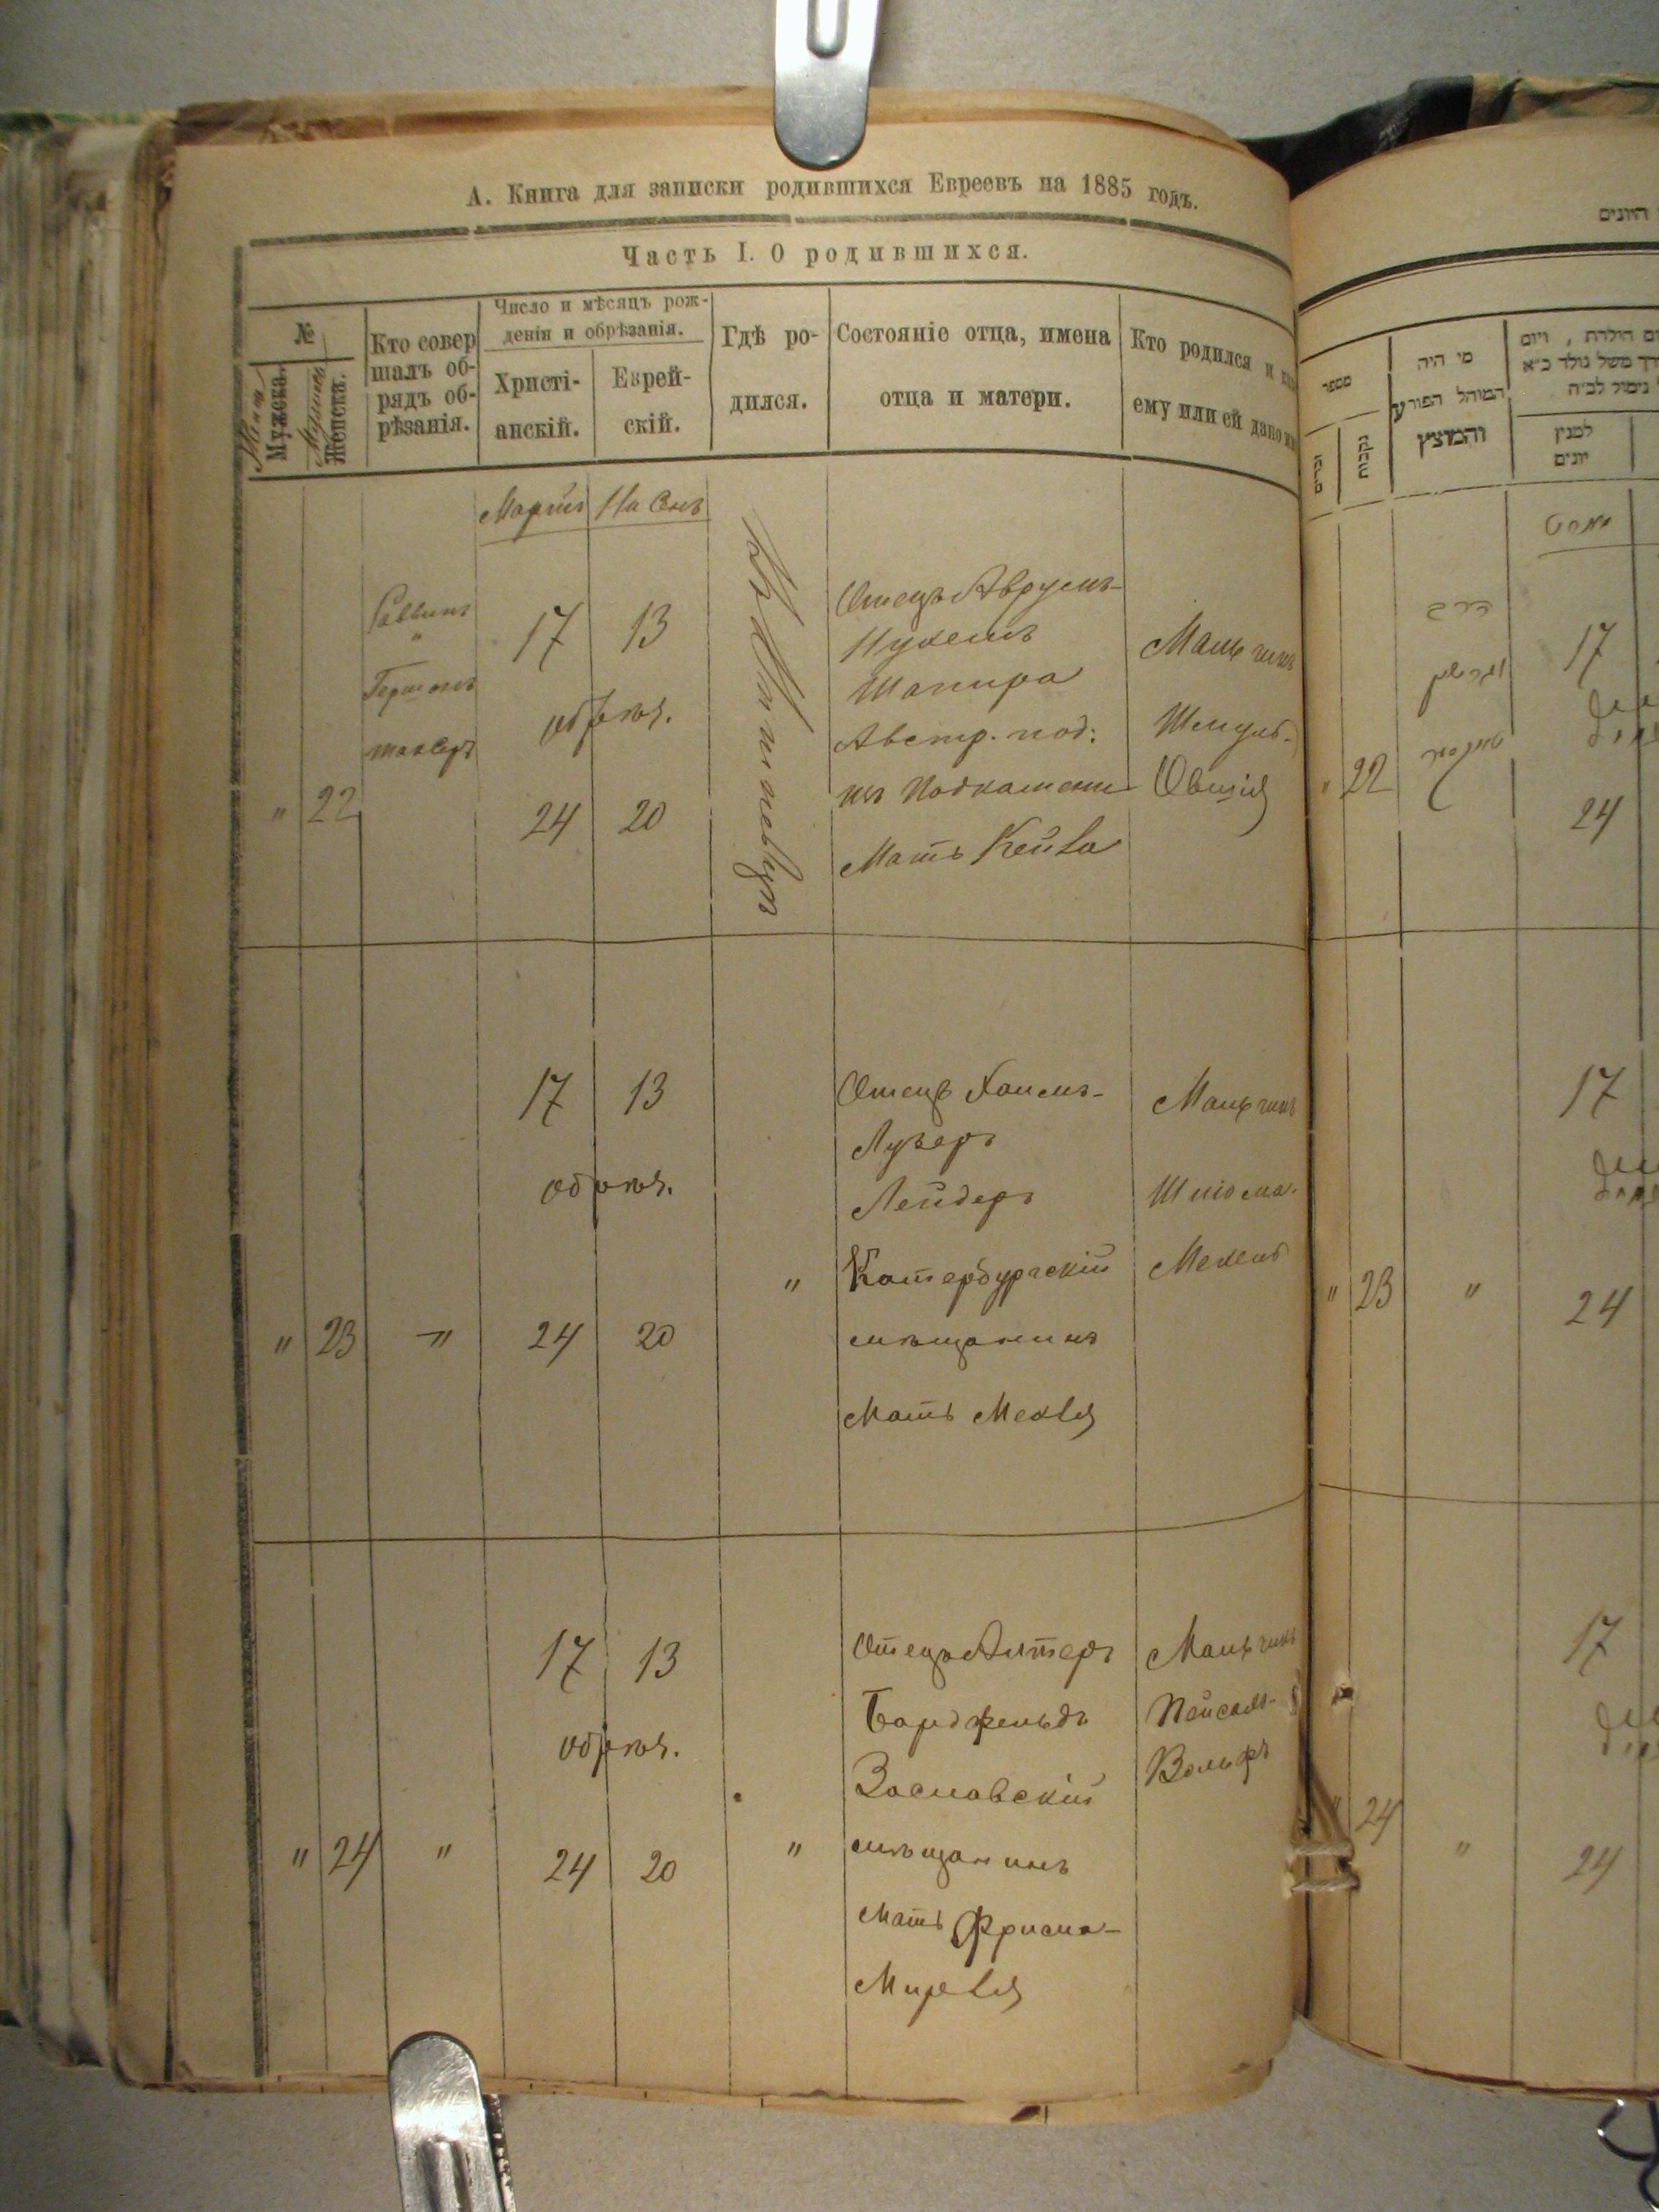 А. Книга для записки родившихся Евреевъ на 1885 годъ.
Часть I. О родившихся.
№
Мужеска.
Женска.
Кто совер
шалъ об-
рядъ об-
рѣзанія.
Число и мѣсяцъ рож-
денія и обрѣзанія.
Христі-
анскій.
Еврей-
скій.
Гдѣ ро-
дился.
Состояніе отца, имена
отца и матери.
Кто родился и
ему или ей дано
Мартъ
" 22
Раввинъ
"
Гершонъ
17 13
обрѣз.
24 20
Отецъ Аврумъ-
Нухемъ
Шапира
Австр. под:
изъ Подкамени
Мать Кейла
Мальчикъ
Шмуль-
Овшія
" 23
"
17 13
обрѣз.
24 20
"
Отецъ Хаимъ-
Лузеръ
Лейдеръ
Катербургскій
мѣщанинъ
Мать Мехля
Мальчикъ
Шліома-
Мехель
" 24
"
17 13
обрѣз.
24 20
"
Отецъ Алтеръ
Заславскій
мѣщанинъ
Мать Фрима-
Мальчикъ
Вольфъ
מספר
זכרים
נקבות
מי היה
המוהל הפורע
והמוצץ
למנין
יונים
22
17
24
" 23
"
17
24
24
"
17
24